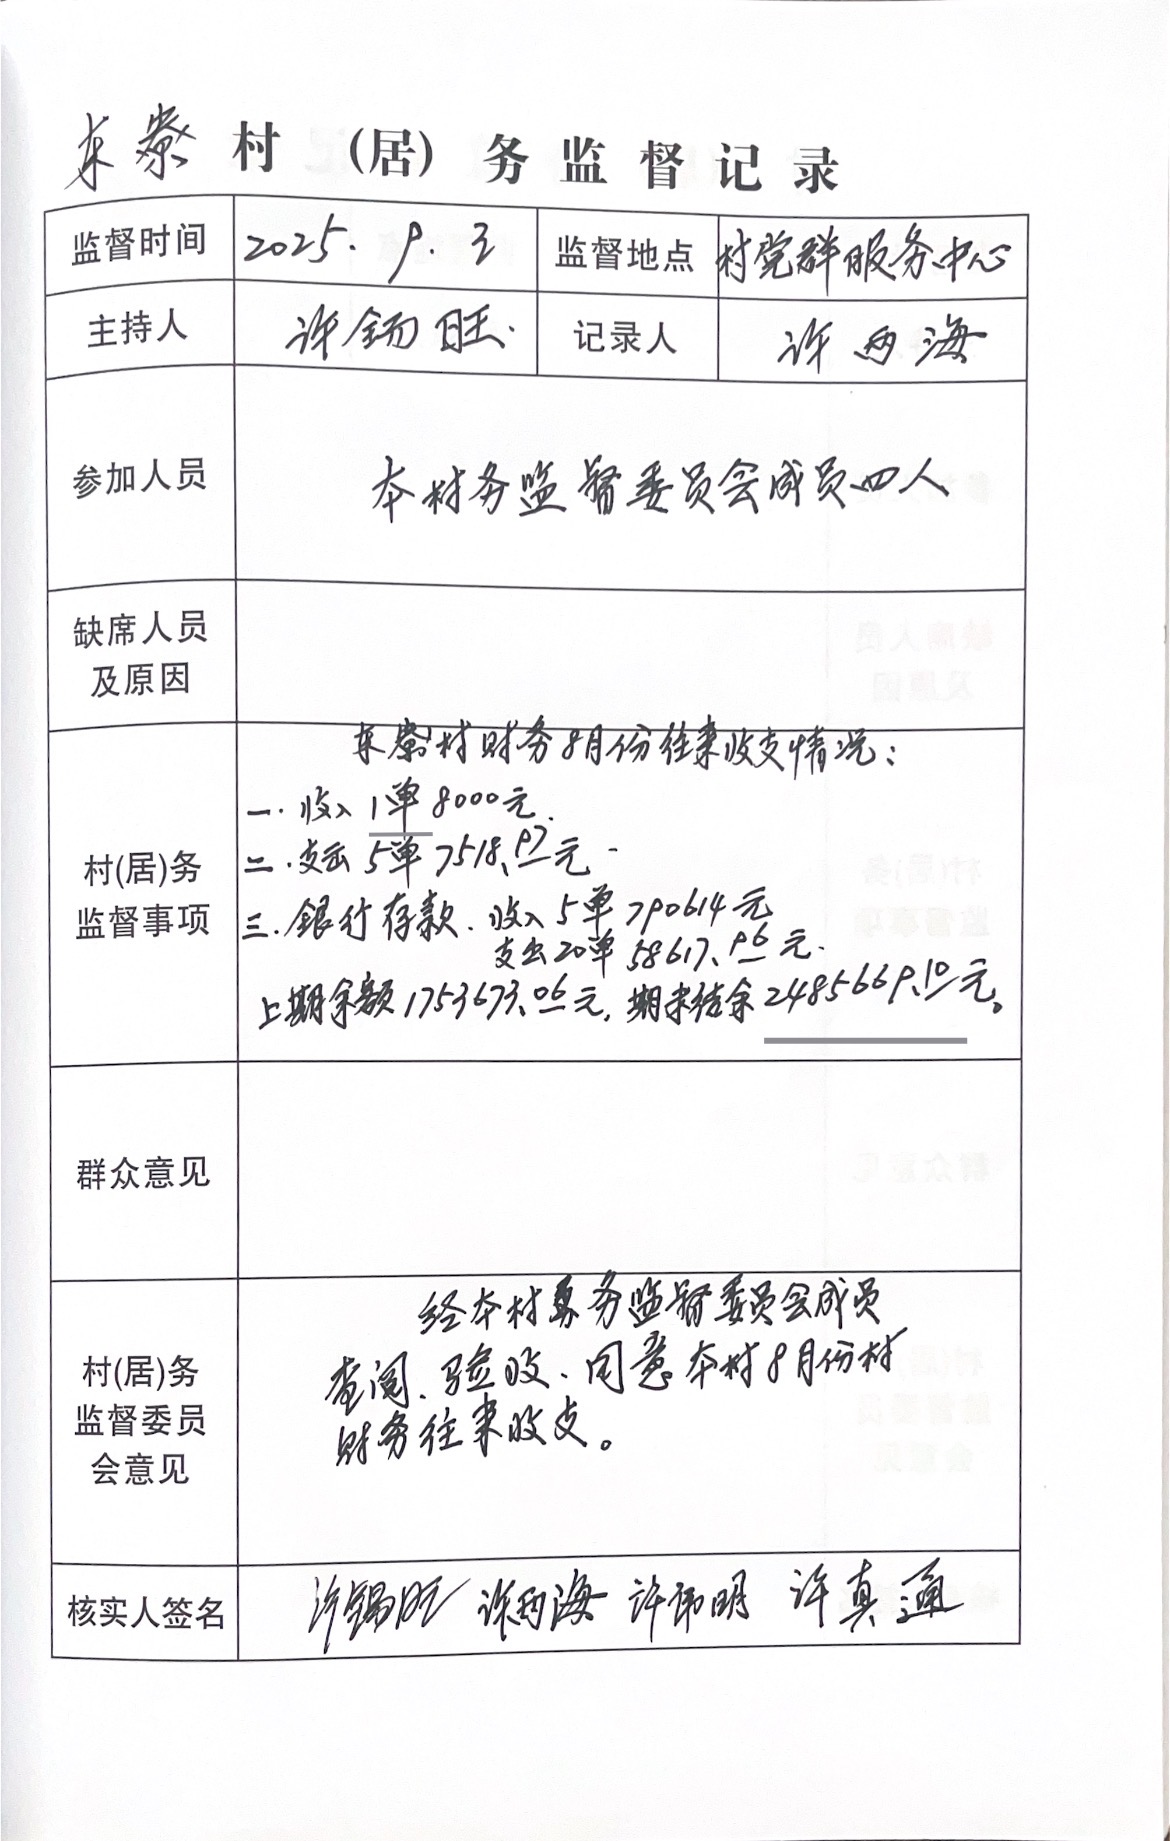 东寮村(居)务监督记录
监督时间 2025.9.3 监督地点 村党群服务中心
主持人 许锡旺. 记录人 许两海
参加人员 本村务监督委员会成员四人
缺席人员
及原因
东寮村财务8月份往来收支情况：
一.收入1单8000元.
村(居)务
监督事项
二.支出5单7518.97元.
三.银行存款.收入5单790614元
支出20单58617.96元.
上期余额1753673.06元,期末结余2485669.10元。
群众意见
村(居)务
监督委员
会意见
经本村务监督委员会成员
查阅.验收.同意本村8月份村
财务往来收支。
核实人签名 许锡旺 许两海 许伟明 许真通